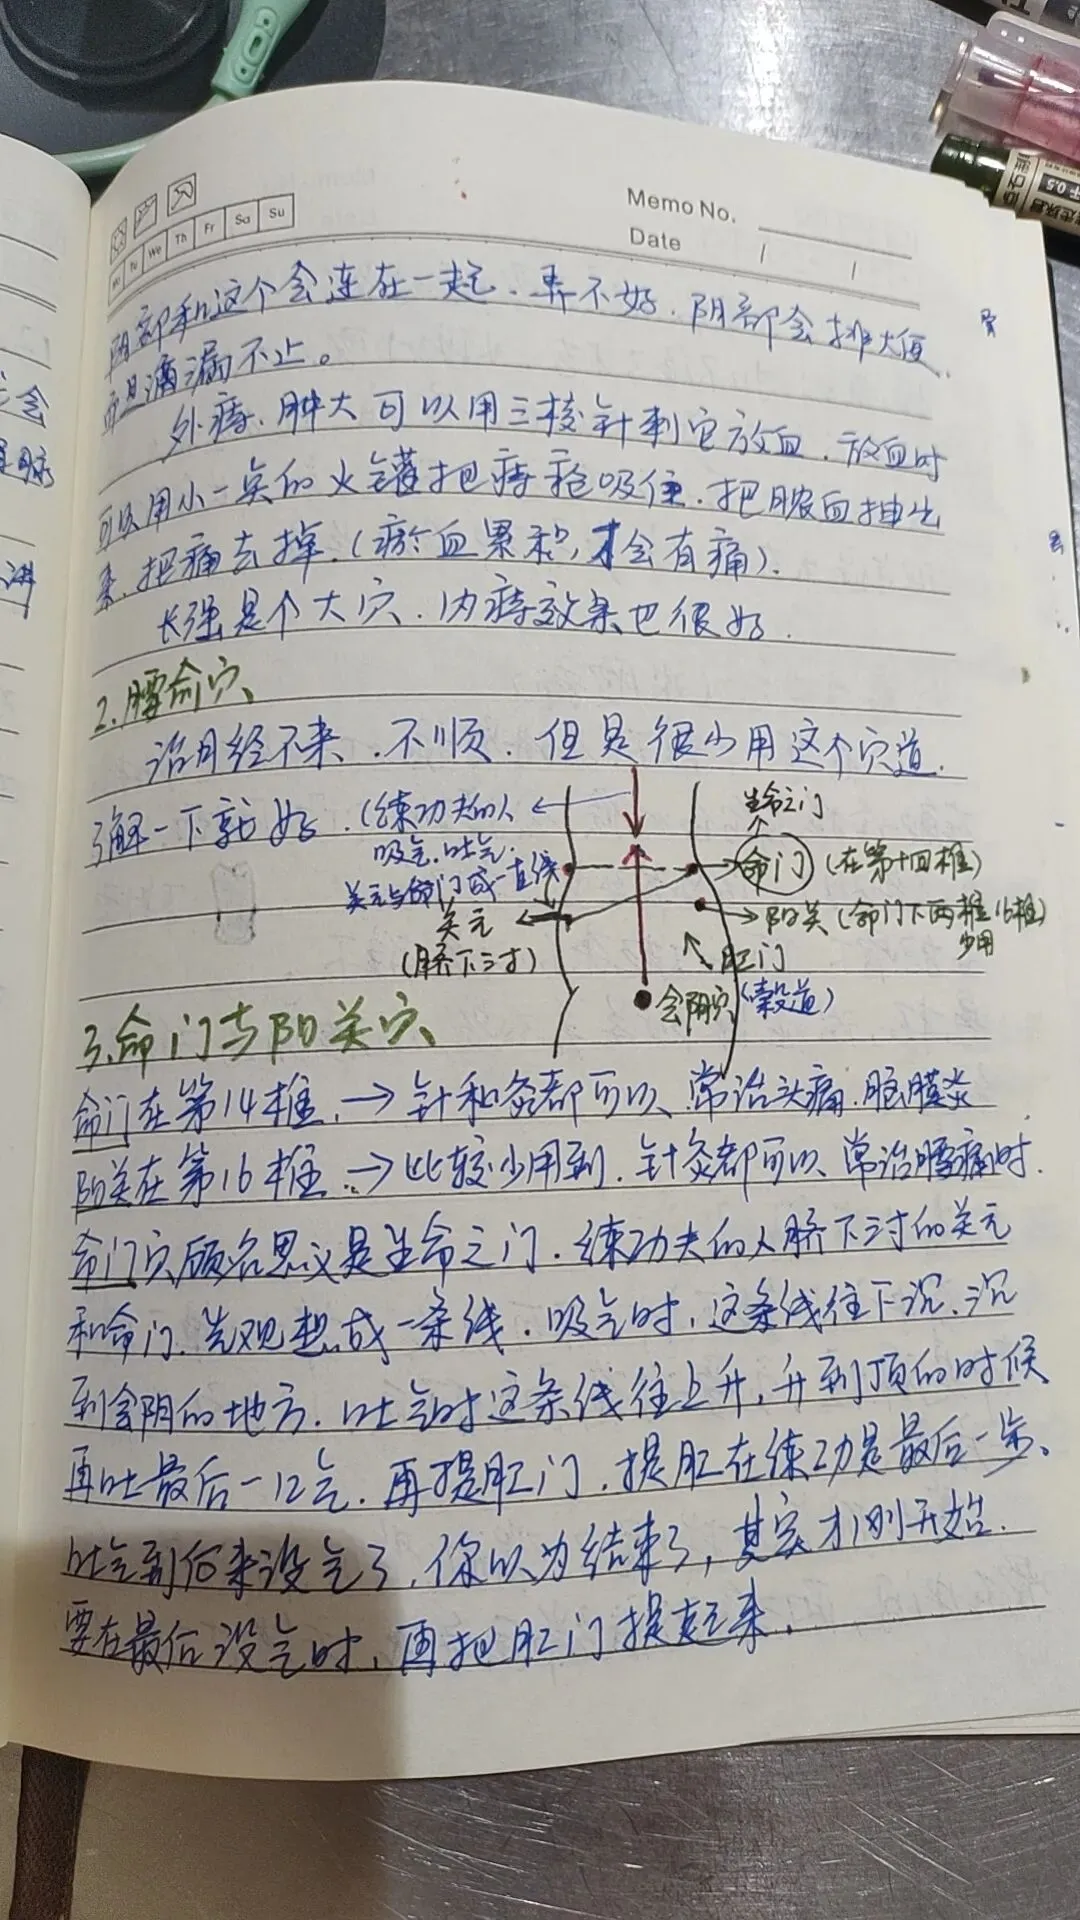 Memo No.
Date / /
Mo Tu We Th Fr Sa Su
阴部和这个会连在一起、弄不好、阴部会排大便、
滴漏不止。
外痔、肿大可以用三棱针刺它放血、放血时
可以用小一点的火罐把痔疮吸住、把脓血抽出
来、把痛去掉、(瘀血累积,才会有痛)、
长强是个大穴、内痔效果也很好、
2、腰俞穴、
治月经不来、不顺、但是很少用这个穴道、
了解一下就好、
(练功夫的人
吸气、吐气、
关元与命门成一直线)
关元
(脐下三寸)
生命之门
命门 (在第十四椎)
阳关 (命门下两椎 16椎)
少用
肛门
会阴穴 (榖道)
3、命门与阳关穴、
命门在第14椎、→针和灸都可以、常治头痛、脑膜炎
阳关在第16椎、→比较少用到、针灸都可以、常治腰痛时、
命门穴顾名思义是生命之门、练功夫的人脐下三寸的关元
和命门、先观想成一条线、吸气时,这条线往下沉、沉
到会阴的地方、吐气时这条线往上升,升到顶的时候
再吐最后一口气、再提肛门、提肛在练功是最后一步、
吐气到后来没气了,你以为结束了,其实才刚开始、
要在最后没气时,再把肛门提起来、
0.5